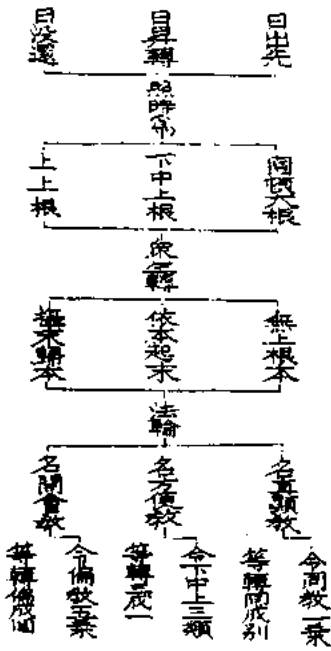 日出先
日昇轉
日沒還
照時
圓頓大根
下中上根
上上根
衆
轉
無上根本
依本起末
攝末歸本
法輪
名直顯教
名方便教
名開會教
令同教一乘
等轉同成別
令下中上三類
等轉三成一
令偏教五乘
等轉偏成圓